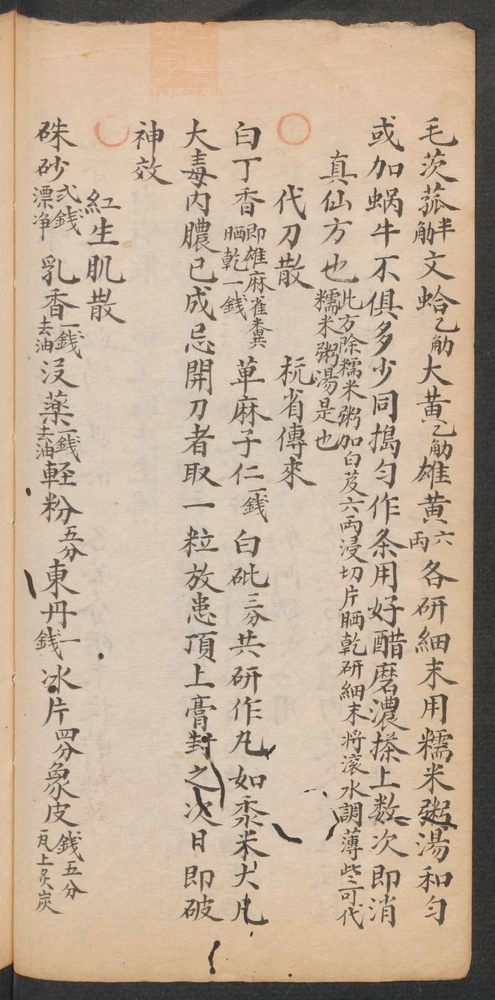 毛茨菰半觔文蛤乙觔大黄乙觔雄黄六両各研細末用糯米粥湯和匀
或加蝸牛不俱多少同搗匀作条用好醋磨濃搽上数次即消
真仙方也此方除糯米粥加白芨六両浸切片晒乾研細末将滚水調薄些可代糯米粥湯是也
代刀散 杬省傳來
白丁香即雄麻雀糞晒乾一錢草麻子仁一錢白砒三分共研作丸如黍米大凡
大毒内膿已成忌開刀者取一粒放患頂上膏封之次日即破
神效
紅生肌散
硃砂弍錢漂净乳香一錢去油没薬一錢去油軽粉五分東丹一錢冰片四分象皮錢五分瓦上炙炭